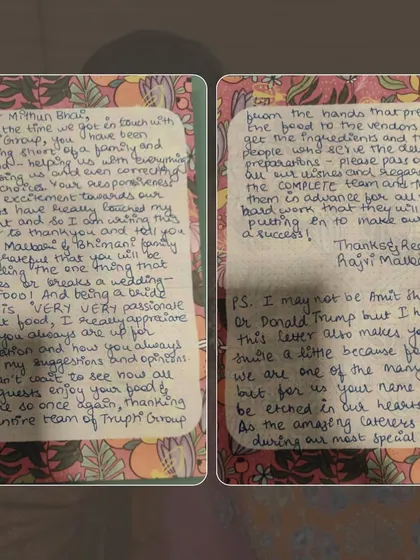 Mithun Bhai,
the time we got in touch with
Group, you have been
ng short of a family and
- helping us with everything
ing us and even correcting
choices. Your responsiveness
excitement towards our
s have really touched my
t and so I am writing this
to thankyou and tell you
Malbari & Bhimani family
rateful that you will be
ling the one thing that
es or breaks a wedding-
FOOD! And being a bride
is VERY VERY passionate
t food, I really appreciate
you always are up for
ation and how you always
my suggestions and opinions.
n't wait to see how all
guests enjoy your food &
e so once again, thanking
ntire team of Trupti Group
from the hands that pre
the food to the vendors
get the ingredients and t
people who serve the de
preparations - please pass o
all our wishes and regard
the COMPLETE team and t
them in advance for all
hard work that they will
putting in to make our
a success!
Thanks & Re
Rajvi Malba
P.S. I may not be Amit Sh
or Donald Trump but I h
this letter also makes y
smile a little because f
we are one of the man
but for us your name
be etched in our hearts
As the amazing caterers
during our most special